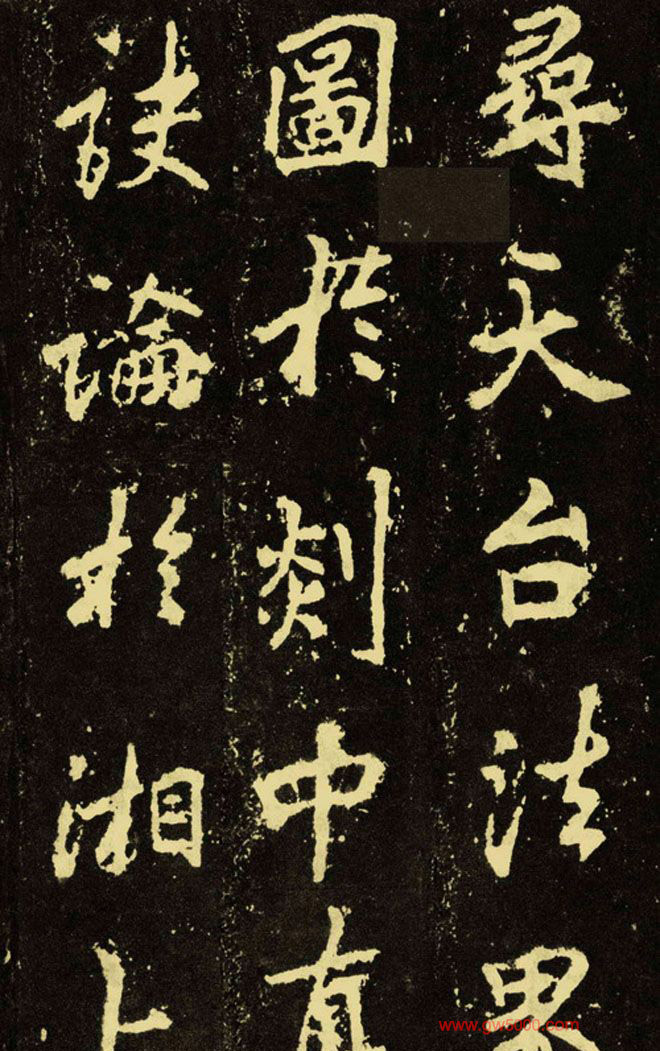 尋天台法界
圖於剡中真
訣論於湘上
www.gw5000.com